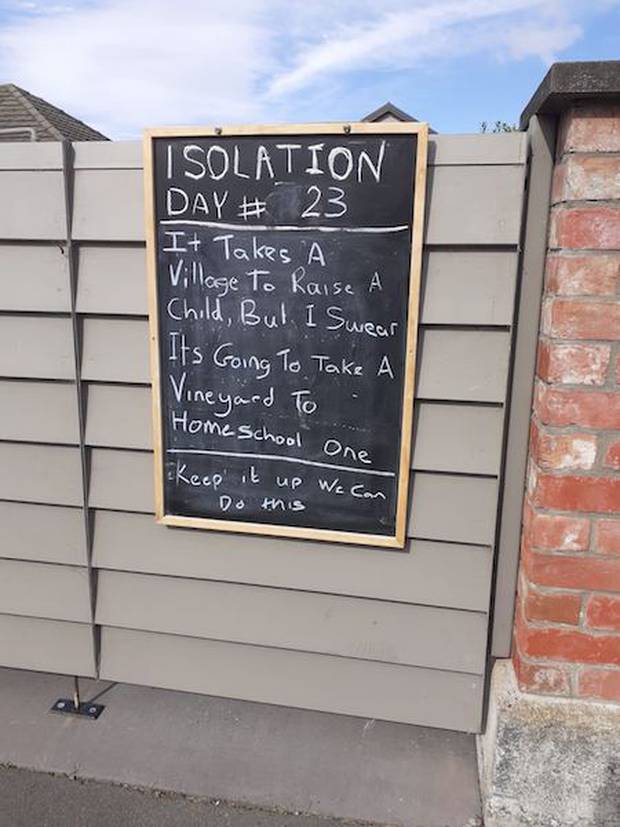 ISOLATION
DAY # 23
It Takes A
Village To Raise A
Child, But I Swear
Its Going To Take A
Vineyard To
Homeschool One
Keep it up We Can
Do this